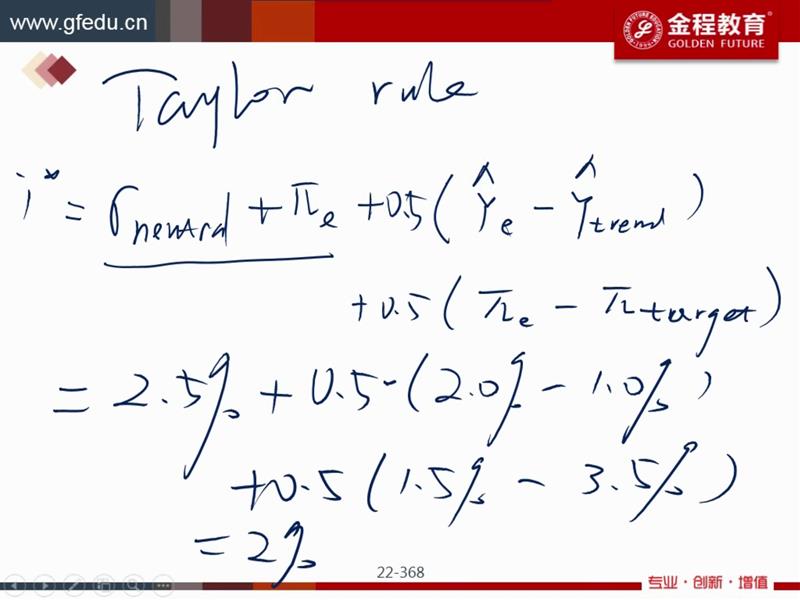 www.gfedu.cn
金程教育®
GOLDEN FUTURE
Taylor rule
i* = r neutral + πe + 0.5 ( Ŷe - Ŷtrend )
+ 0.5 ( πe - πtarget )
= 2.5% + 0.5 · (2.0% - 1.0%)
+ 0.5 (1.5% - 3.5%)
= 2%
22-368
专业·创新·增值